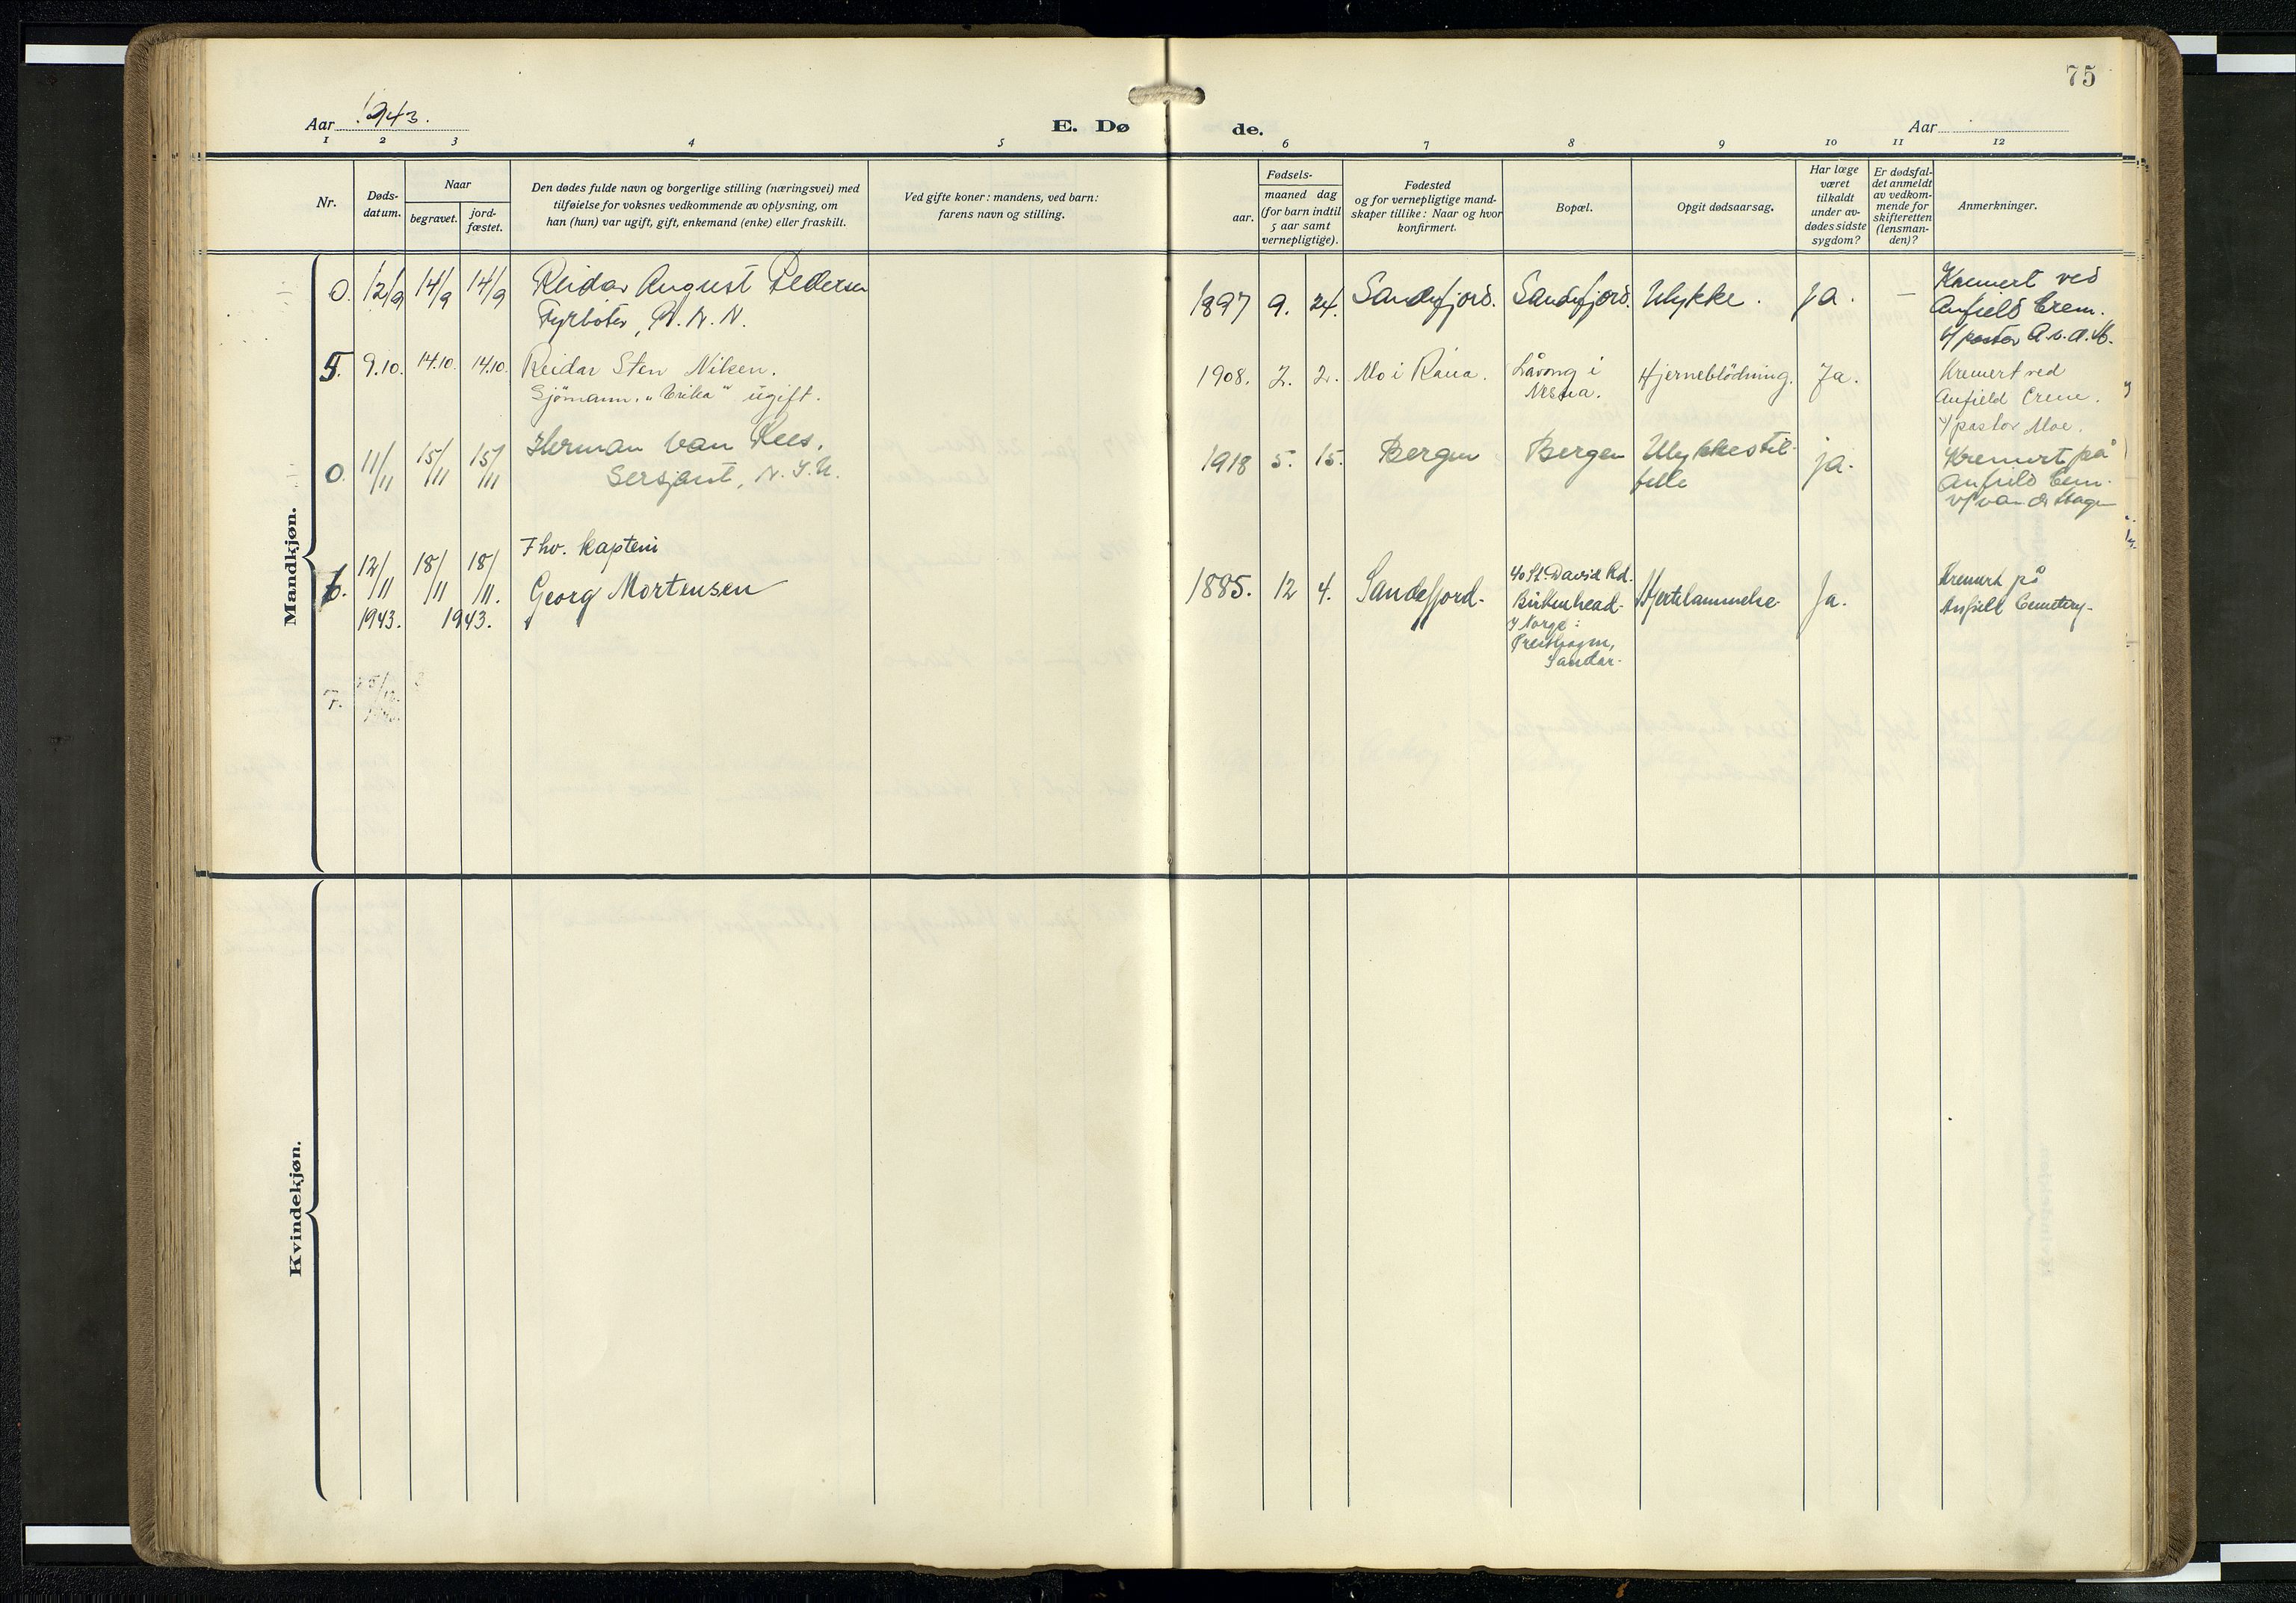 75
Aar 1943.
E. Dø
de.
Aar
1 2 3 4 5 6 7 8 9 10 11 12
Nr.
Døds-
datum.
Naar
begravet.
jord-
fæstet.
Den dødes fulde navn og borgerlige stilling (næringsvei) med
tilføielse for voksnes vedkommende av oplysning, om
han (hun) var ugift, gift, enkemand (enke) eller fraskilt.
Ved gifte koner: mandens, ved barn:
farens navn og stilling.
Fødsels-
aar.
maaned dag
(for barn indtil
5 aar samt
vernepligtige).
Fødested
og for vernepligtige mand-
skaper tillike: Naar og hvor
konfirmert.
Bopæl.
Opgit dødsaarsag.
Har læge
været
tilkaldt
under av-
dødes sidste
sygdom?
Er dødsfal-
det anmeldt
av vedkom-
mende for
skifteretten
(lensman-
den)?
Anmerkninger.
Mandkjøn.
0. 12/9 14/9 14/9 Reidar August Pedersen
Fyrbøter, R. N. N.
1897 9. 24. Sandefjord. Sandefjord. Ulykke. ja. —
Kremert ved
Anfield Crem.
v/ pastor A.v.d.H.
5. 9.10. 14.10. 14.10. Reidar Sten Nilsen.
Sjömann. "Erika" ugift.
1908. 2. 2. Mo i Rana. Låvong i
Nesna.
Hjerneblödning. Ja.
Kremert ved
Anfield Crem.
v/ pastor Moe.
0. 11/11 15/11 15/11 Herman Van Rees.
Sersjant, N.
1918 5. 15. Bergen Bergen Ulykkestil-
felle
ja.
Kremert på
Anfield Cem.
v/ van der Hagen
6. 12/11 1943. 18/11 18/11. 1943.
Fhv. kaptein
Georg Mortensen
1885. 12 4. Sandefjord. 40 St. David Rd.
Birkenhead.
I Norge:
Presthagen,
Sandar.
Hjertelammelse Ja.
Kremert på
Anfield Cemetery.
7.
Kvindekjøn.